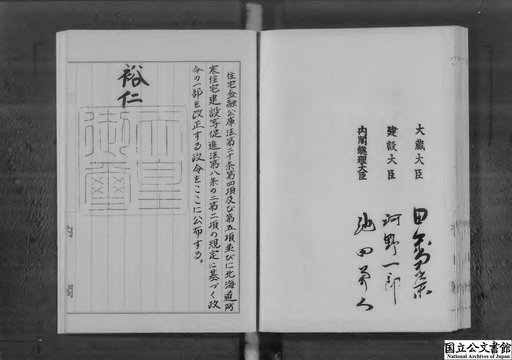 大蔵大臣 田中角榮
建設大臣 河野一郎
内閣総理大臣 池田勇人
住宅金融公庫法第二十条第四項及び第五項並びに北海道防
寒住宅建設等促進法第八条の二第二項の規定に基づく政
令の一部を改正する政令をここに公布する。
裕仁
天皇
御璽
国立公文書館
National Archives of Japan